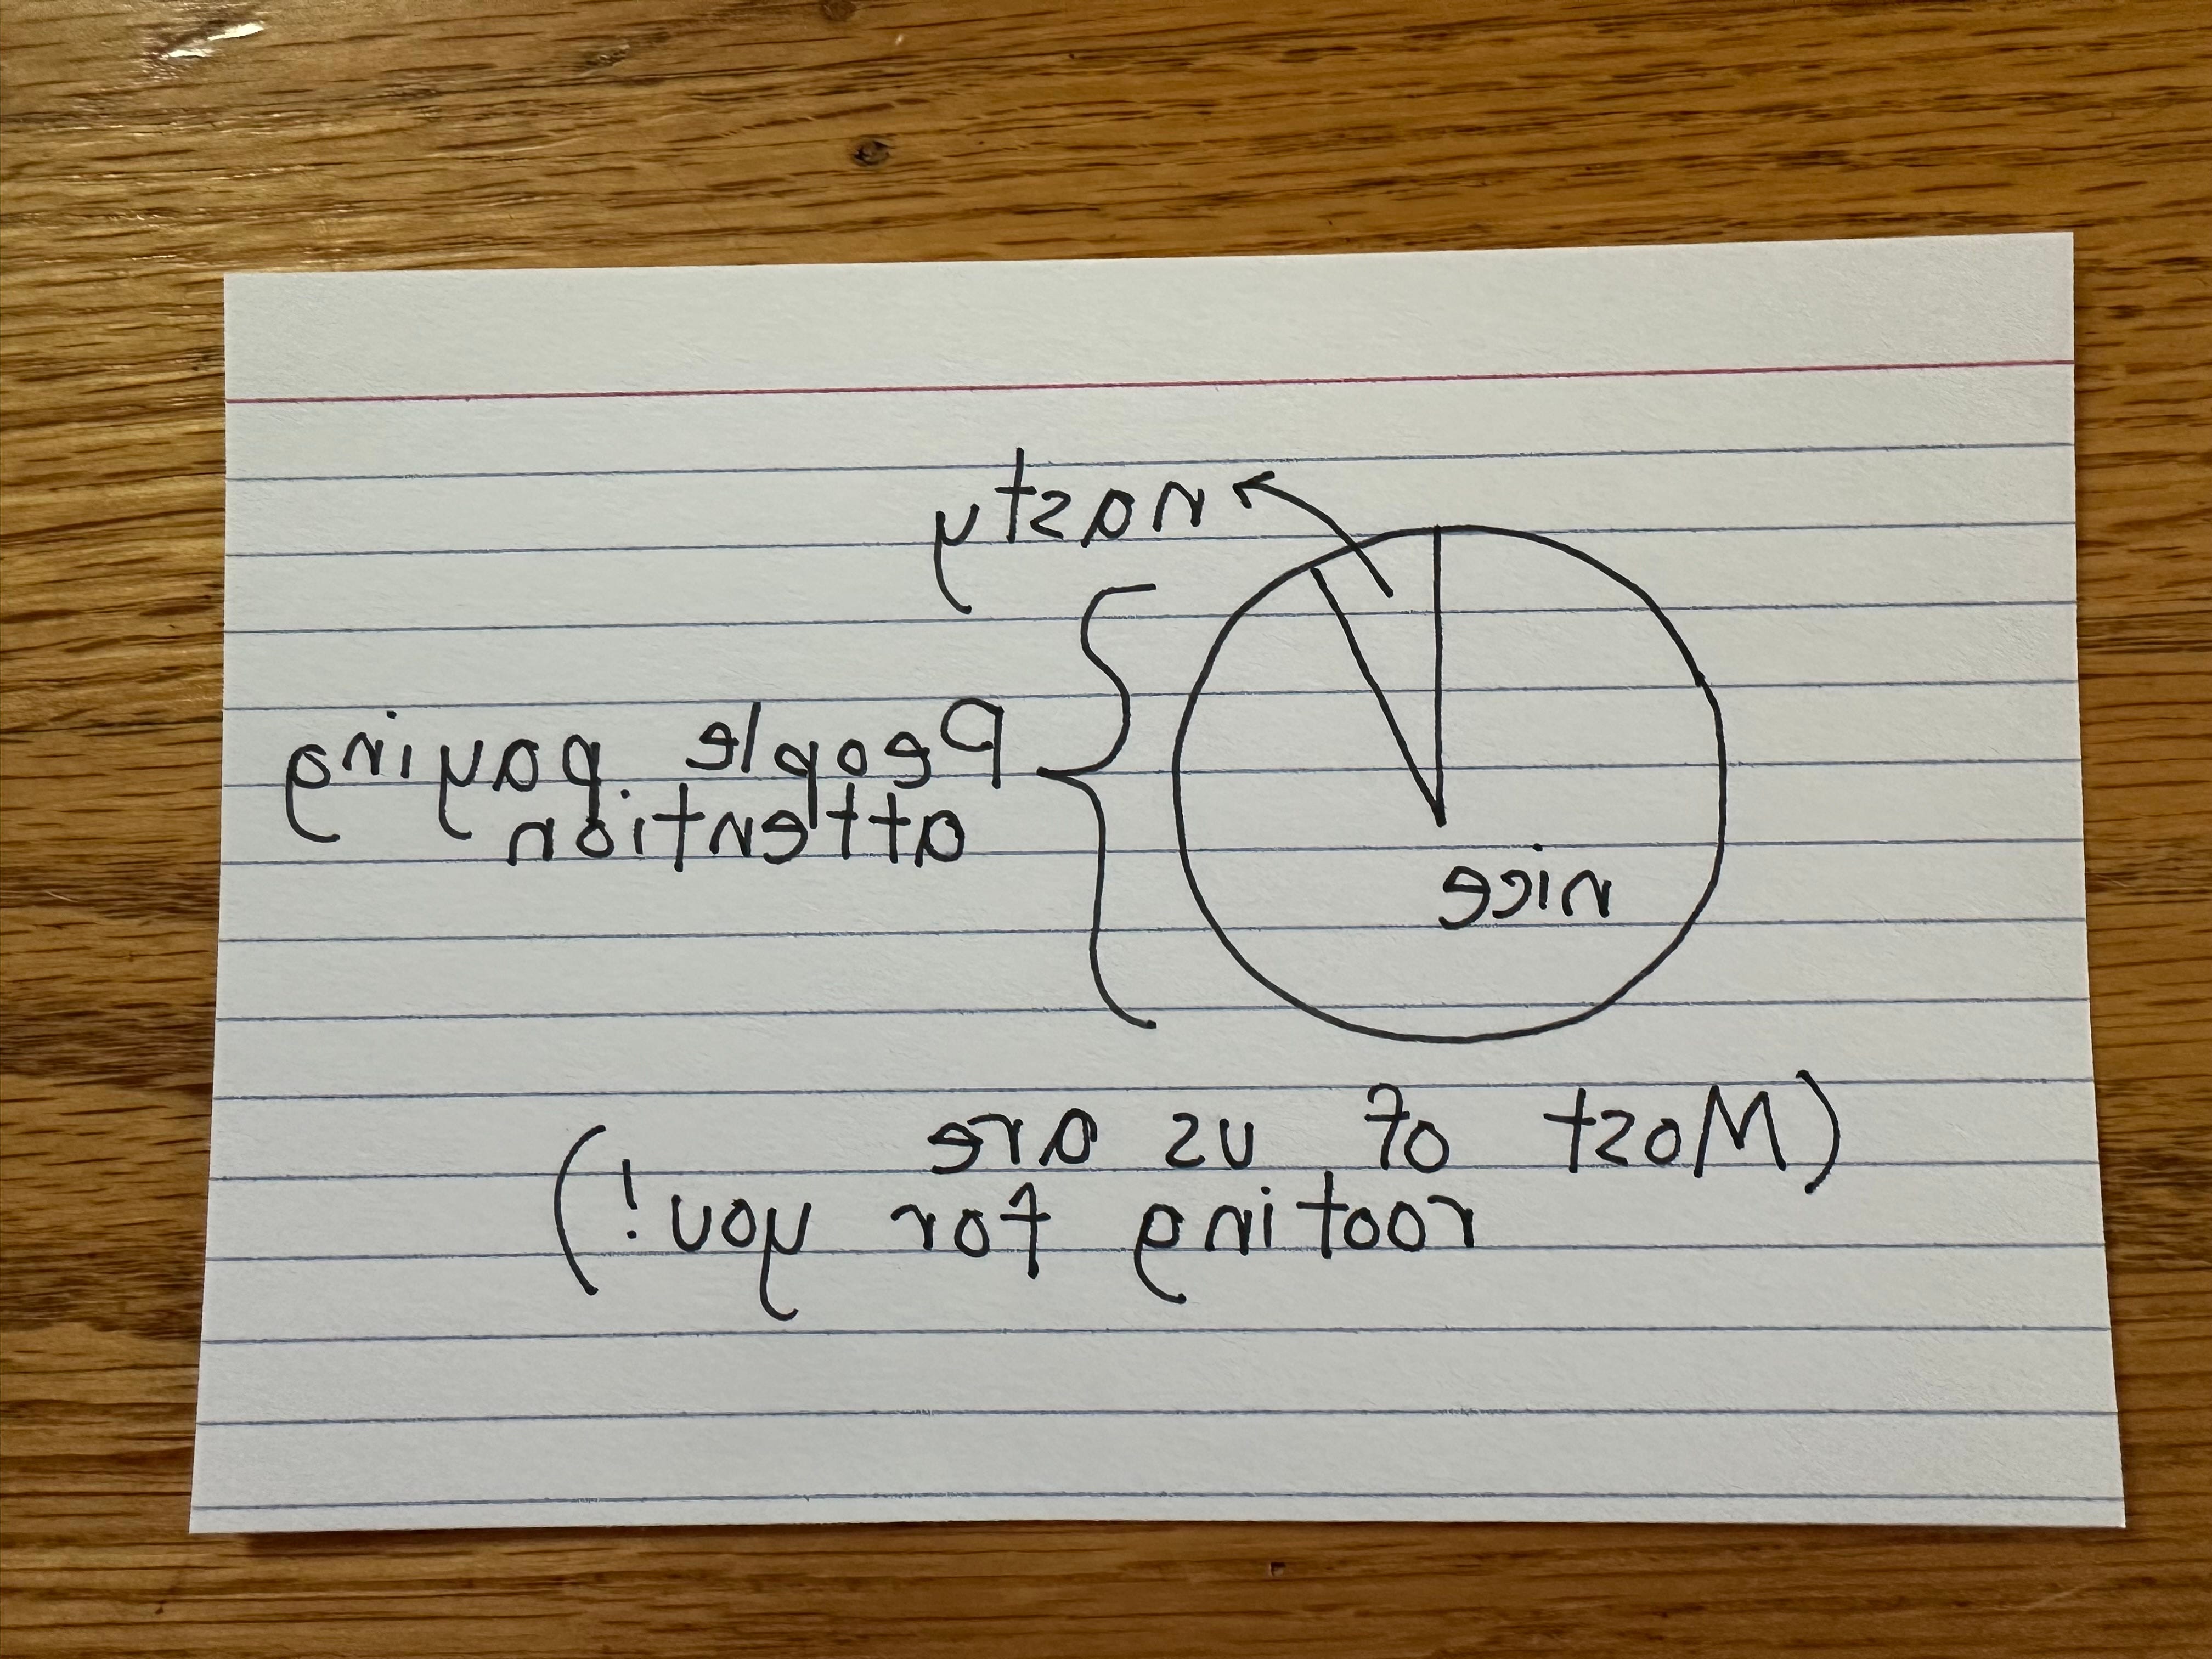 nasty
People paying
attention
nice
(Most of us are
rooting for you!)